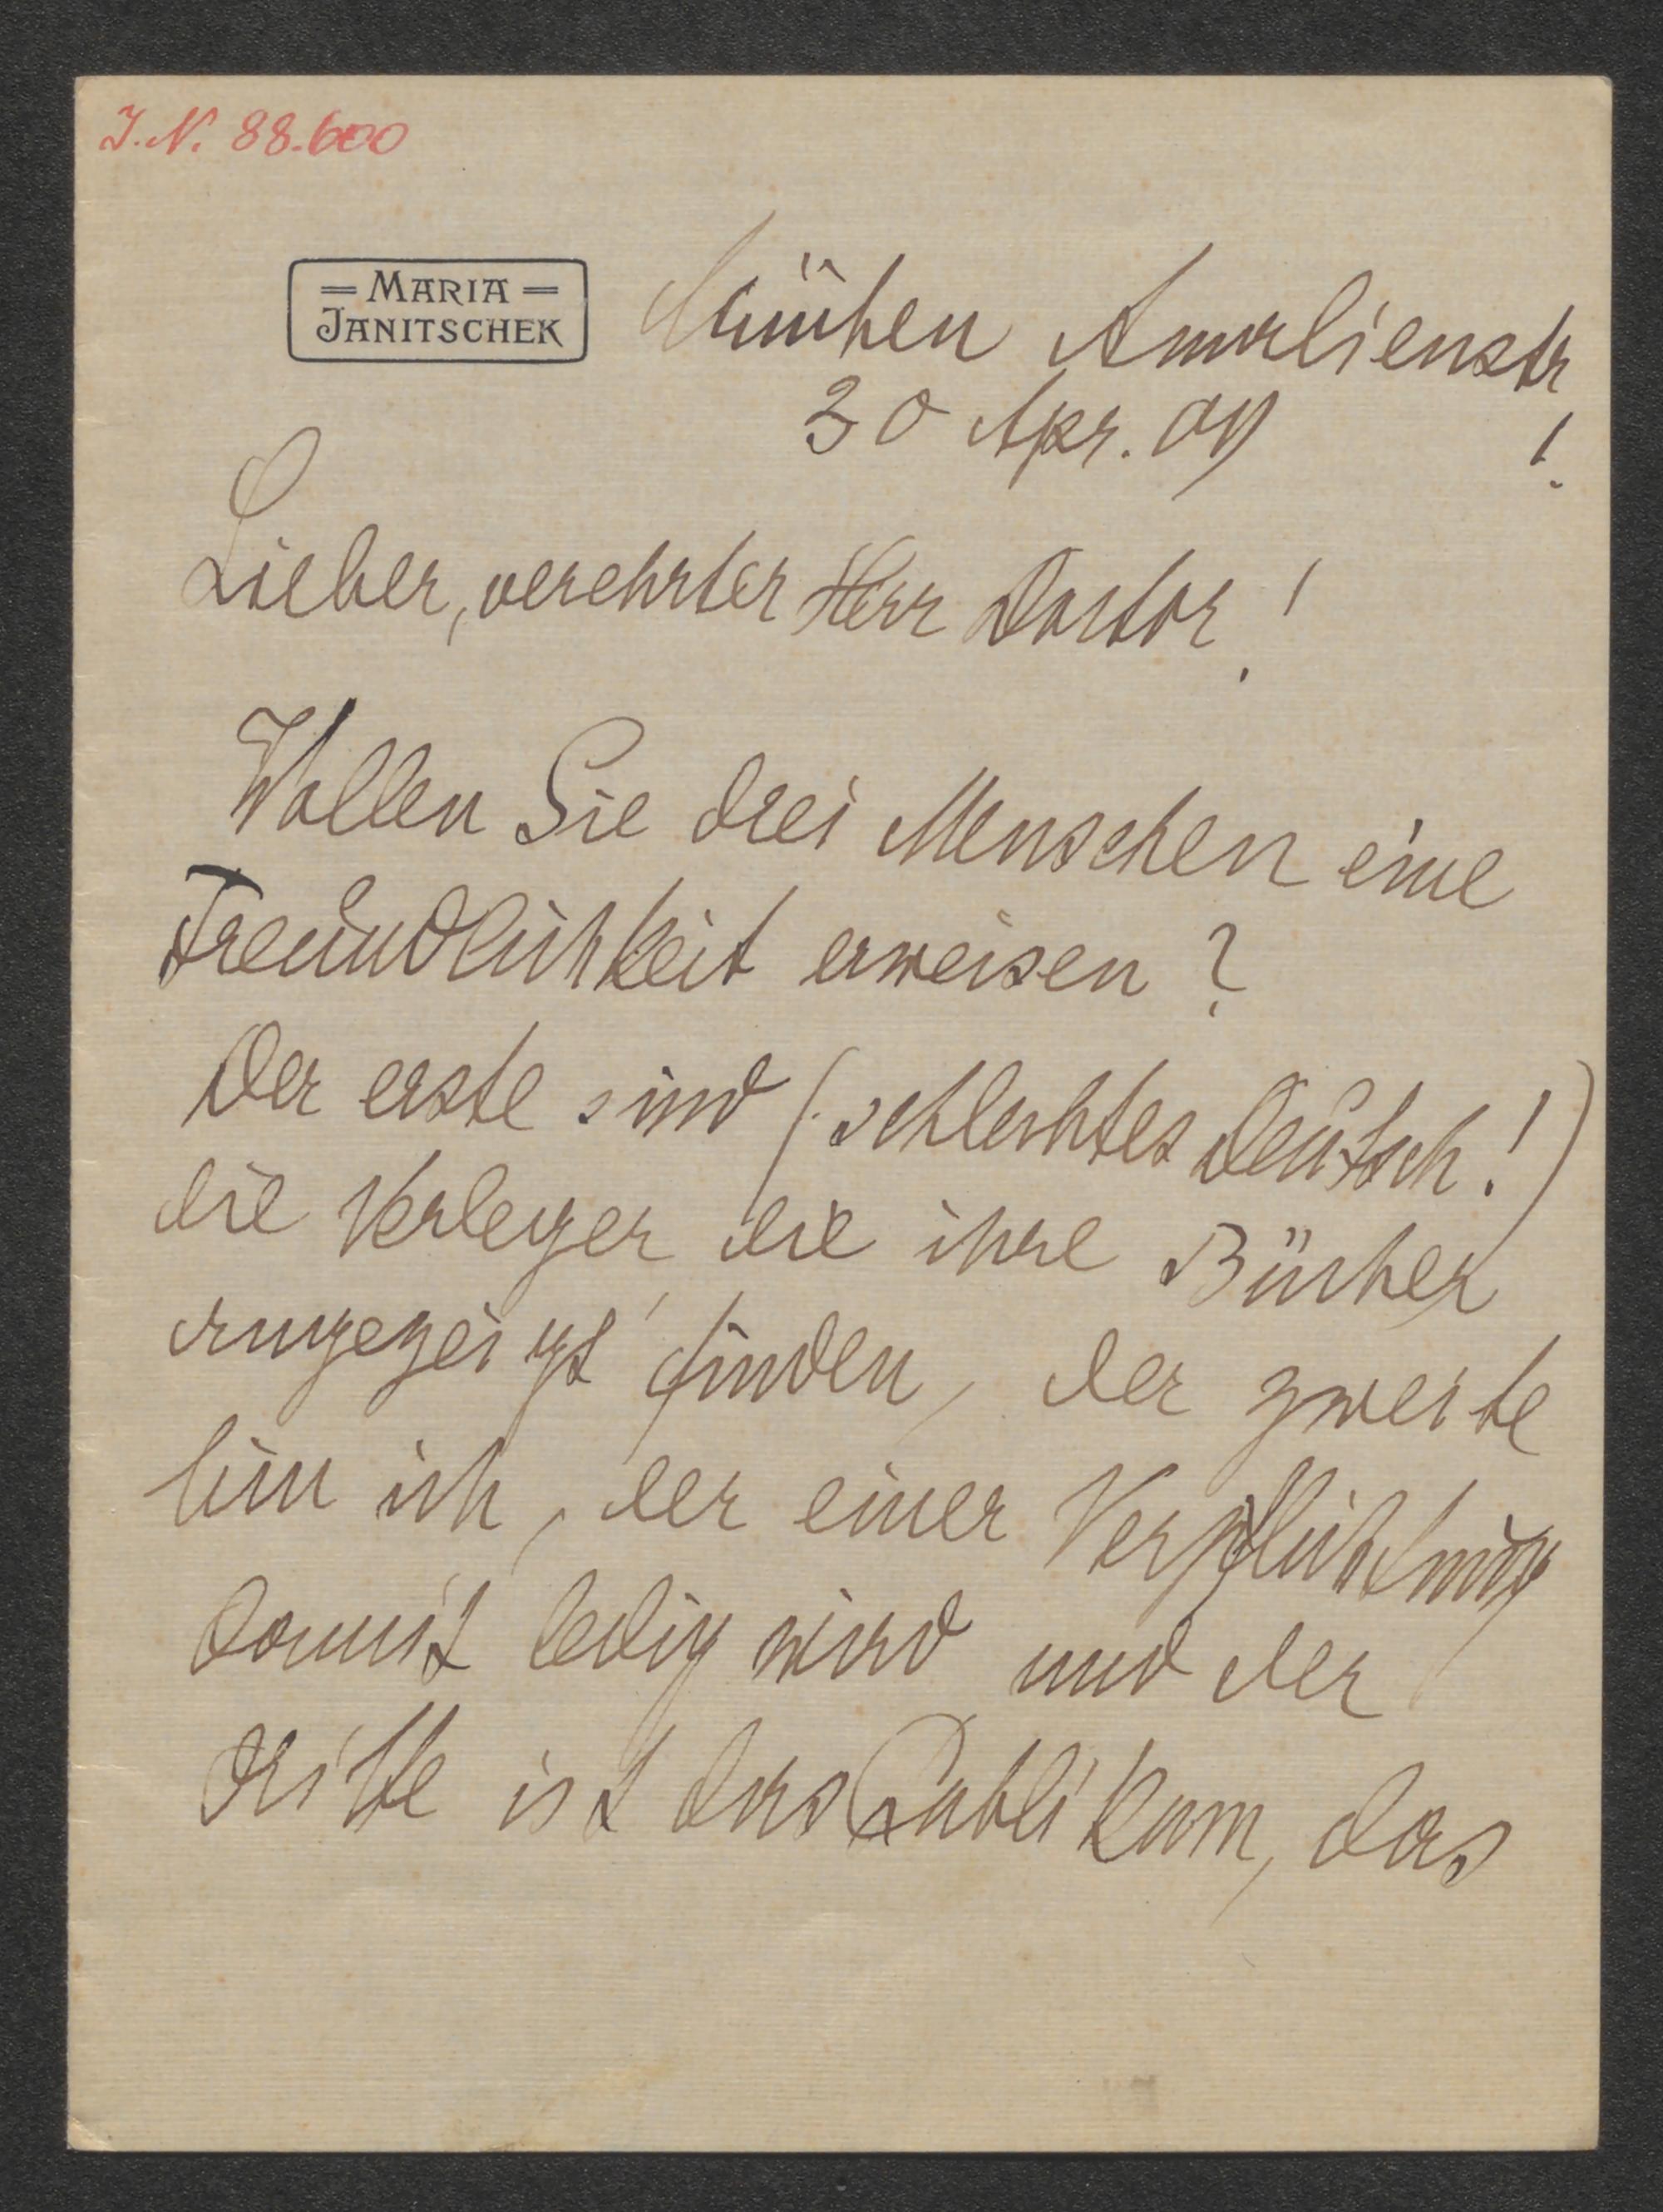 J.N. 88.600
= MARIA =
JANITSCHEK
München Amalienstr
30 Apr. 09 !
Lieber, verehrter Herr Doctor!
Wollen Sie drei Menschen eine
Freundlichkeit erweisen?
Der erste sind (schlechtes Deutsch!)
die Verleger die ihre Bücher
angezeigt finden, der zweite
bin ich, der einer Verpflichtung
damit ledig wird und der
dritte ist das Publikum, das